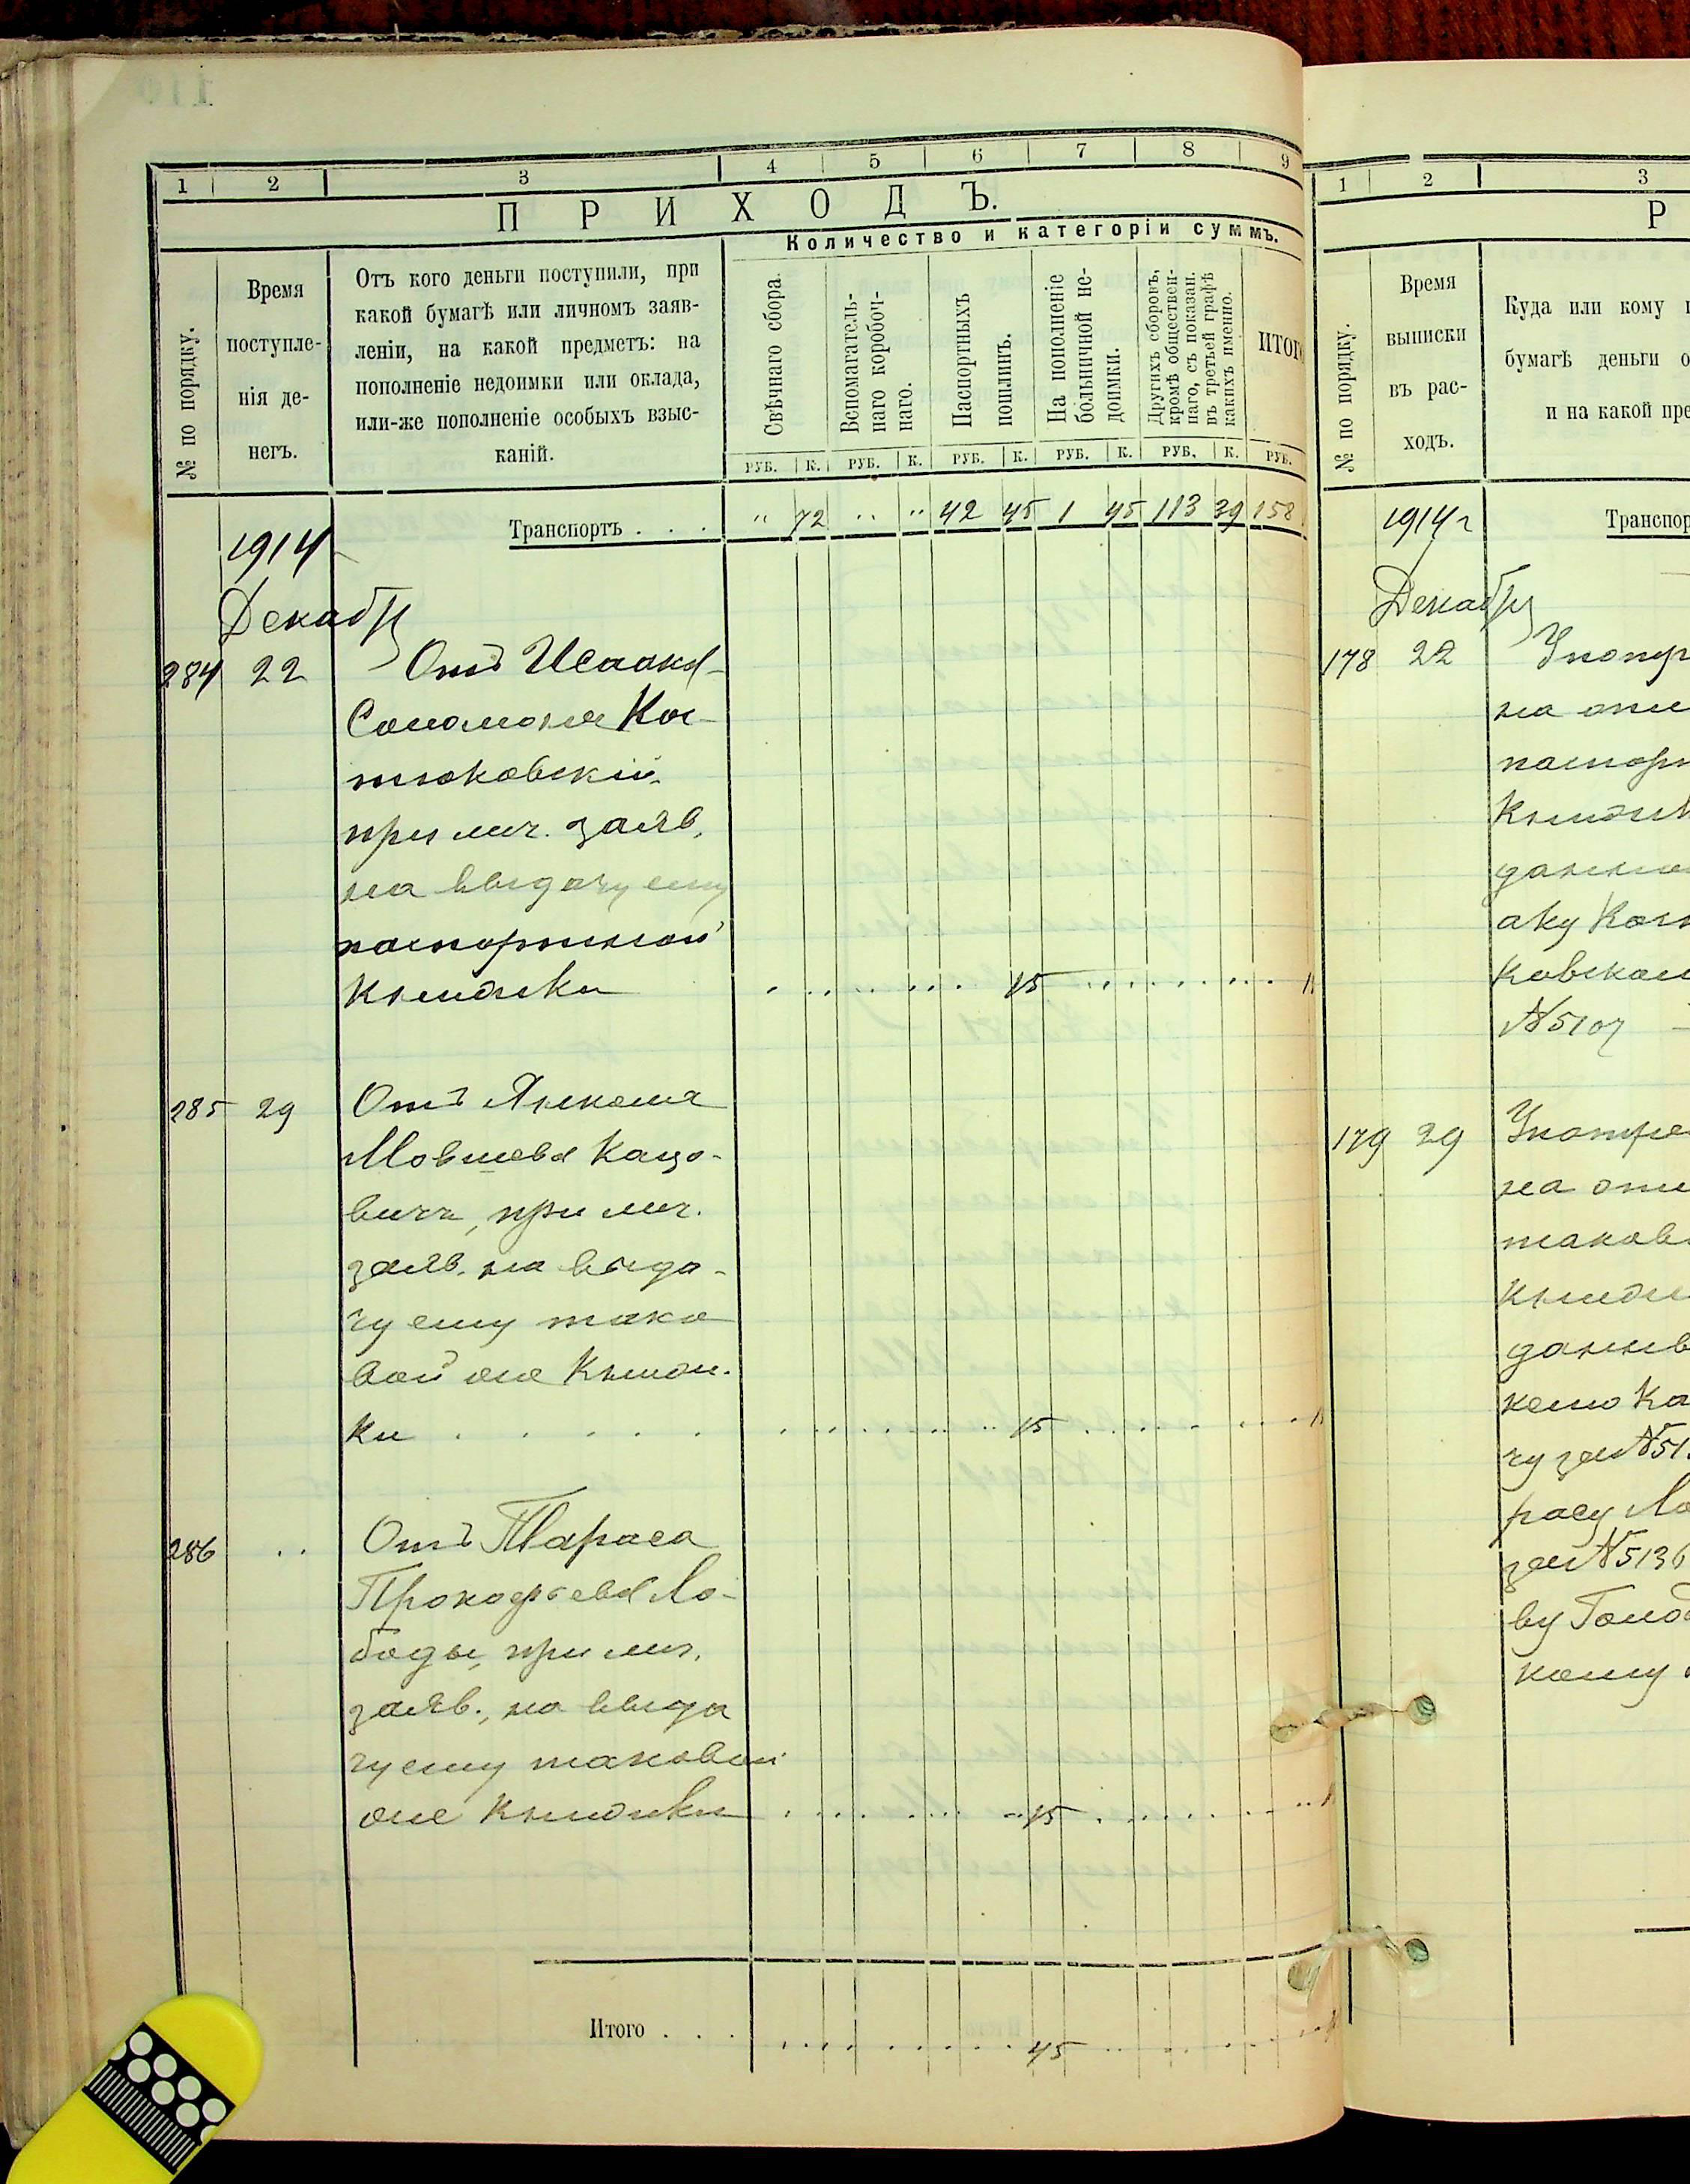 1 2 3 4 5 6 7 8 9
ПРИХОДЪ.
Количество и категоріи суммъ.
№ по порядку.
Время
поступле-
нія де-
негъ.
Отъ кого деньги поступили, при
какой бумагѣ или личномъ заяв-
леніи, на какой предметъ: на
пополненіе недоимки или оклада,
или-же пополненіе особыхъ взыс-
каній.
Свѣчнаго сбора.
Вспомагатель-
наго коробоч-
наго.
Паспортныхъ
пошлинъ.
На пополненіе
больничной не-
доимки.
Другихъ сборовъ,
кромѣ обществен-
наго, съ показан.
въ третьей графѣ
какихъ именно.
ИТОГ
РУБ. К. РУБ. К. РУБ. К. РУБ. К. РУБ. К. РУБ.
Транспортъ . . . " 72 " " 42 45 1 45 113 39 158
1914
Декабря
284 22 Отъ Исаака
Соломона Кос-
тюковскій
при лич. заяв.
на выдачу ему
паспортной
книжки 15
285 29 Отъ Янкеля
Мовшева Кацо-
вича, при лич.
заяв. на выда-
чу ему тако
вой же книж-
ки . . . . . 15
286 " Отъ Тараса
Прокофьева Ло-
боды, при лич.
заяв., на выда
чу ему таковой
же книжки 15
Итого . . . 45
1 2 3
Р
№ по порядку.
Время
выписки
въ рас-
ходъ.
Куда или кому
бумагѣ деньги о
и на какой пре
Транспор
1914 г
Декабря
178 22 Употр
на опл
паспорт
книжк
данно
аку Кос
ковском
№ 5107
179 29 Употре
на опл
таков
книж
данны
келю Ка
чу за № 51
расу Ло
за № 5136
ву Голод
кому